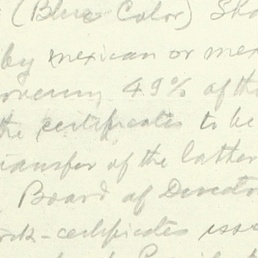 (Blue Color) Sha
by mexican or mex
overing 49% of the
the certificates to be
ransfer of the latter
Board of Directo
ork-certificates issu